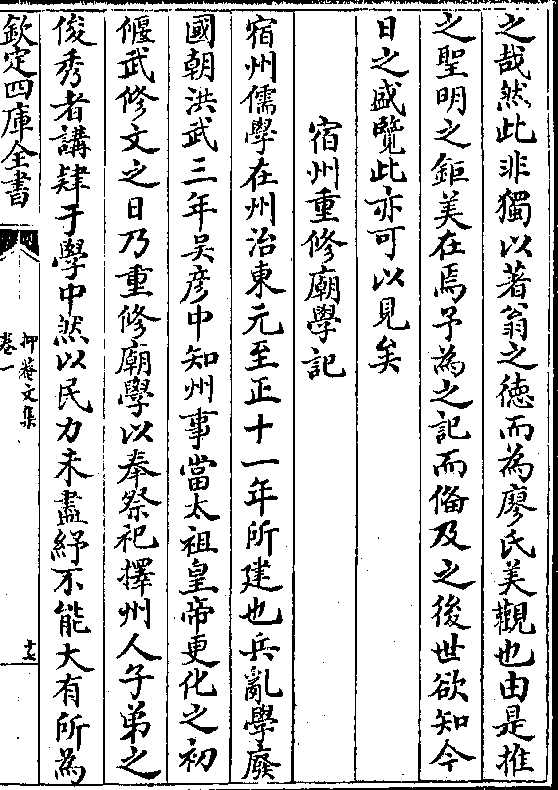 之哉然此非獨以著翁之徳而為廖氏美觀也由是推
之聖明之鉅美在焉予為之記而俻及之後世欲知今
日之盛覽此亦可以見矣
宿州重修廟學記
宿州儒學在州治東元至正十一年所建也兵亂學廢
國朝洪武三年吳彦中知州事當太祖皇帝更化之初
偃武修文之日乃重修廟學以奉祭祀擇州人子弟之
俊秀者講肄于學中然以民力未盡紓不能大有所為
欽定四庫全書
抑菴文集
卷一